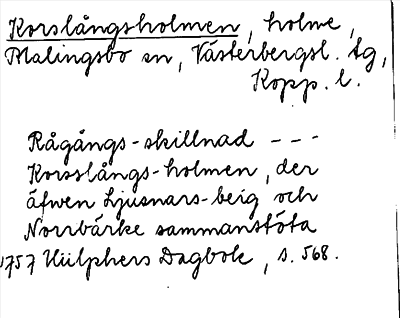 Korslångsholmen, holme,
Malingsbo sn, Västerbergsl. tg,
Kopp. l.
Rågångs-skillnad - - -
Korsslångs-holmen, der
äfwen Ljusnars-berg och
Norrbärke sammanstöta
1757 Hülphers Dagbok, s. 568.